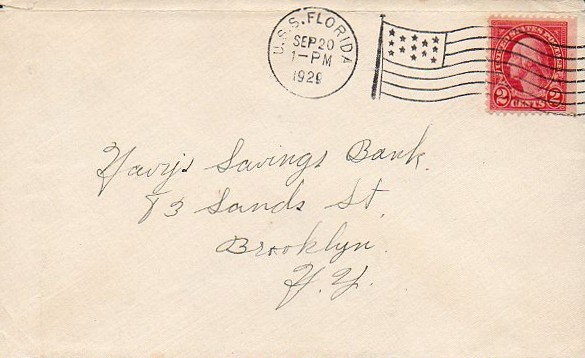 U.S.S. FLORIDA
SEP 20
1-PM
1929
UNITED STATES POSTAGE
2 CENTS 2
Navy's Savings Bank.
83 Sands St.
Brooklyn.
N.Y.